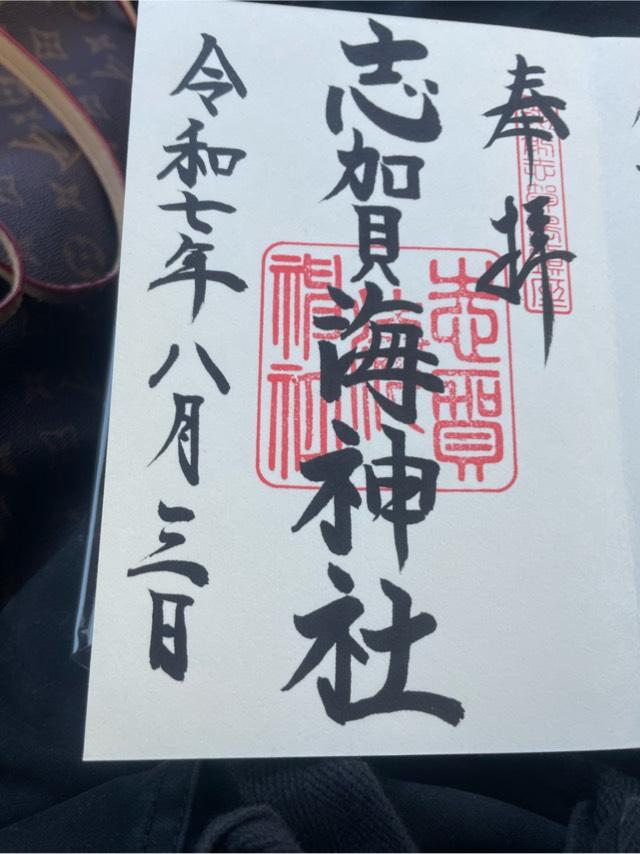 奉拝
志賀海神社
志賀海神社
令和七年八月三日